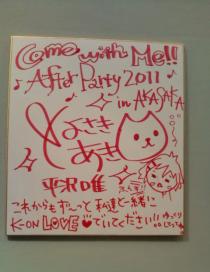 Come with Me!!
♪After Party 2011♪
in AKASAKA
とよさき
あき
平沢唯
これからもずーっと私達と一緒に
K-ON LOVE♥でいてください!!